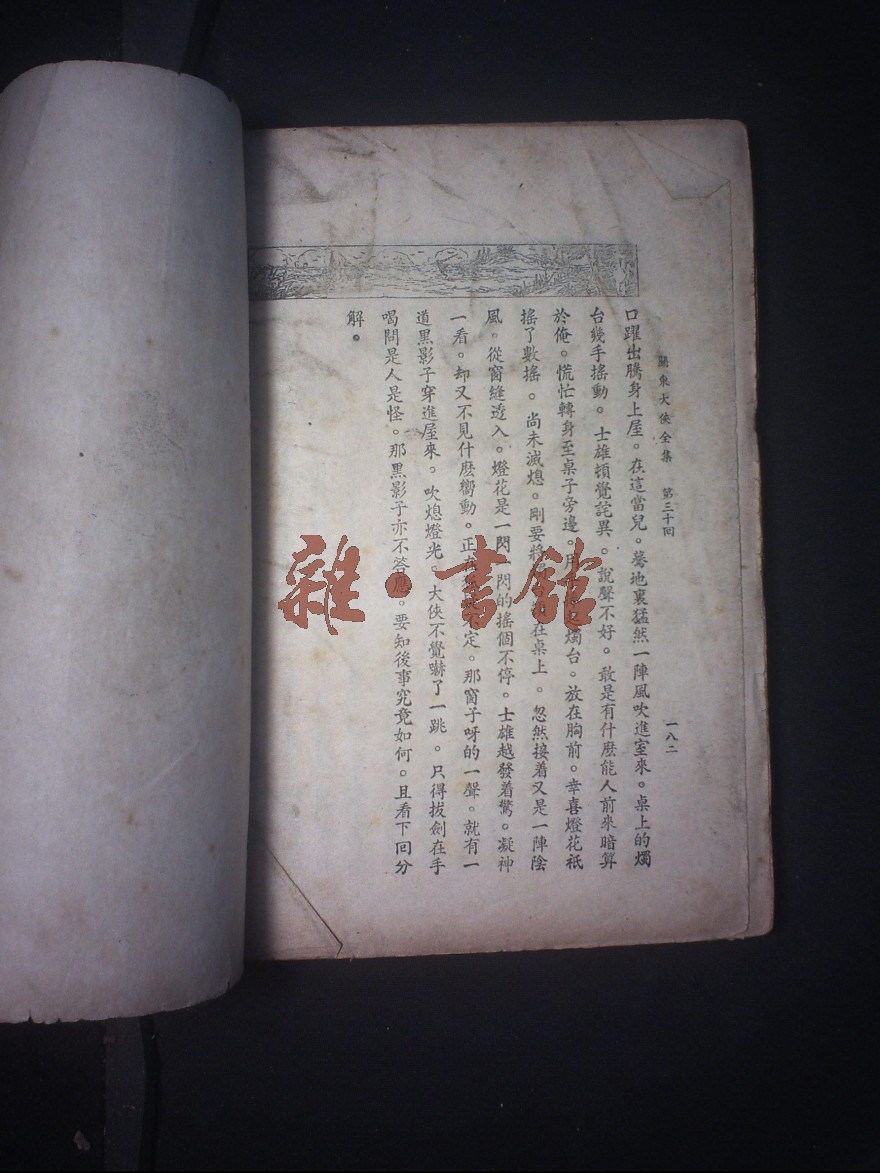 關東大俠全集 第三十回 一八二
口躍出騰身上屋。在這當兒。驀地裏猛然一陣風吹進室來。桌上的燭
台幾手搖動。士雄頓覺詫異。說聲不好。敢是有什麼能人前來暗算
於俺。慌忙轉身至桌子旁邊。用 燭台。放在胸前。幸喜燈花祇
搖了數搖。尚未滅熄。剛要將 在桌上。忽然接着又是一陣陰
風。從窗縫透入。燈花是一閃一閃的搖個不停。士雄越發着驚。凝神
一看。却又不見什麽嚮動。正在 不定。那窗子呀的一聲。就有一
道黑影子穿進屋來。吹熄燈光。大俠不覺嚇了一跳。只得拔劍在手
喝問是人是怪。那黑影子亦不答應。要知後事究竟如何。且看下回分
解。
雜·書館